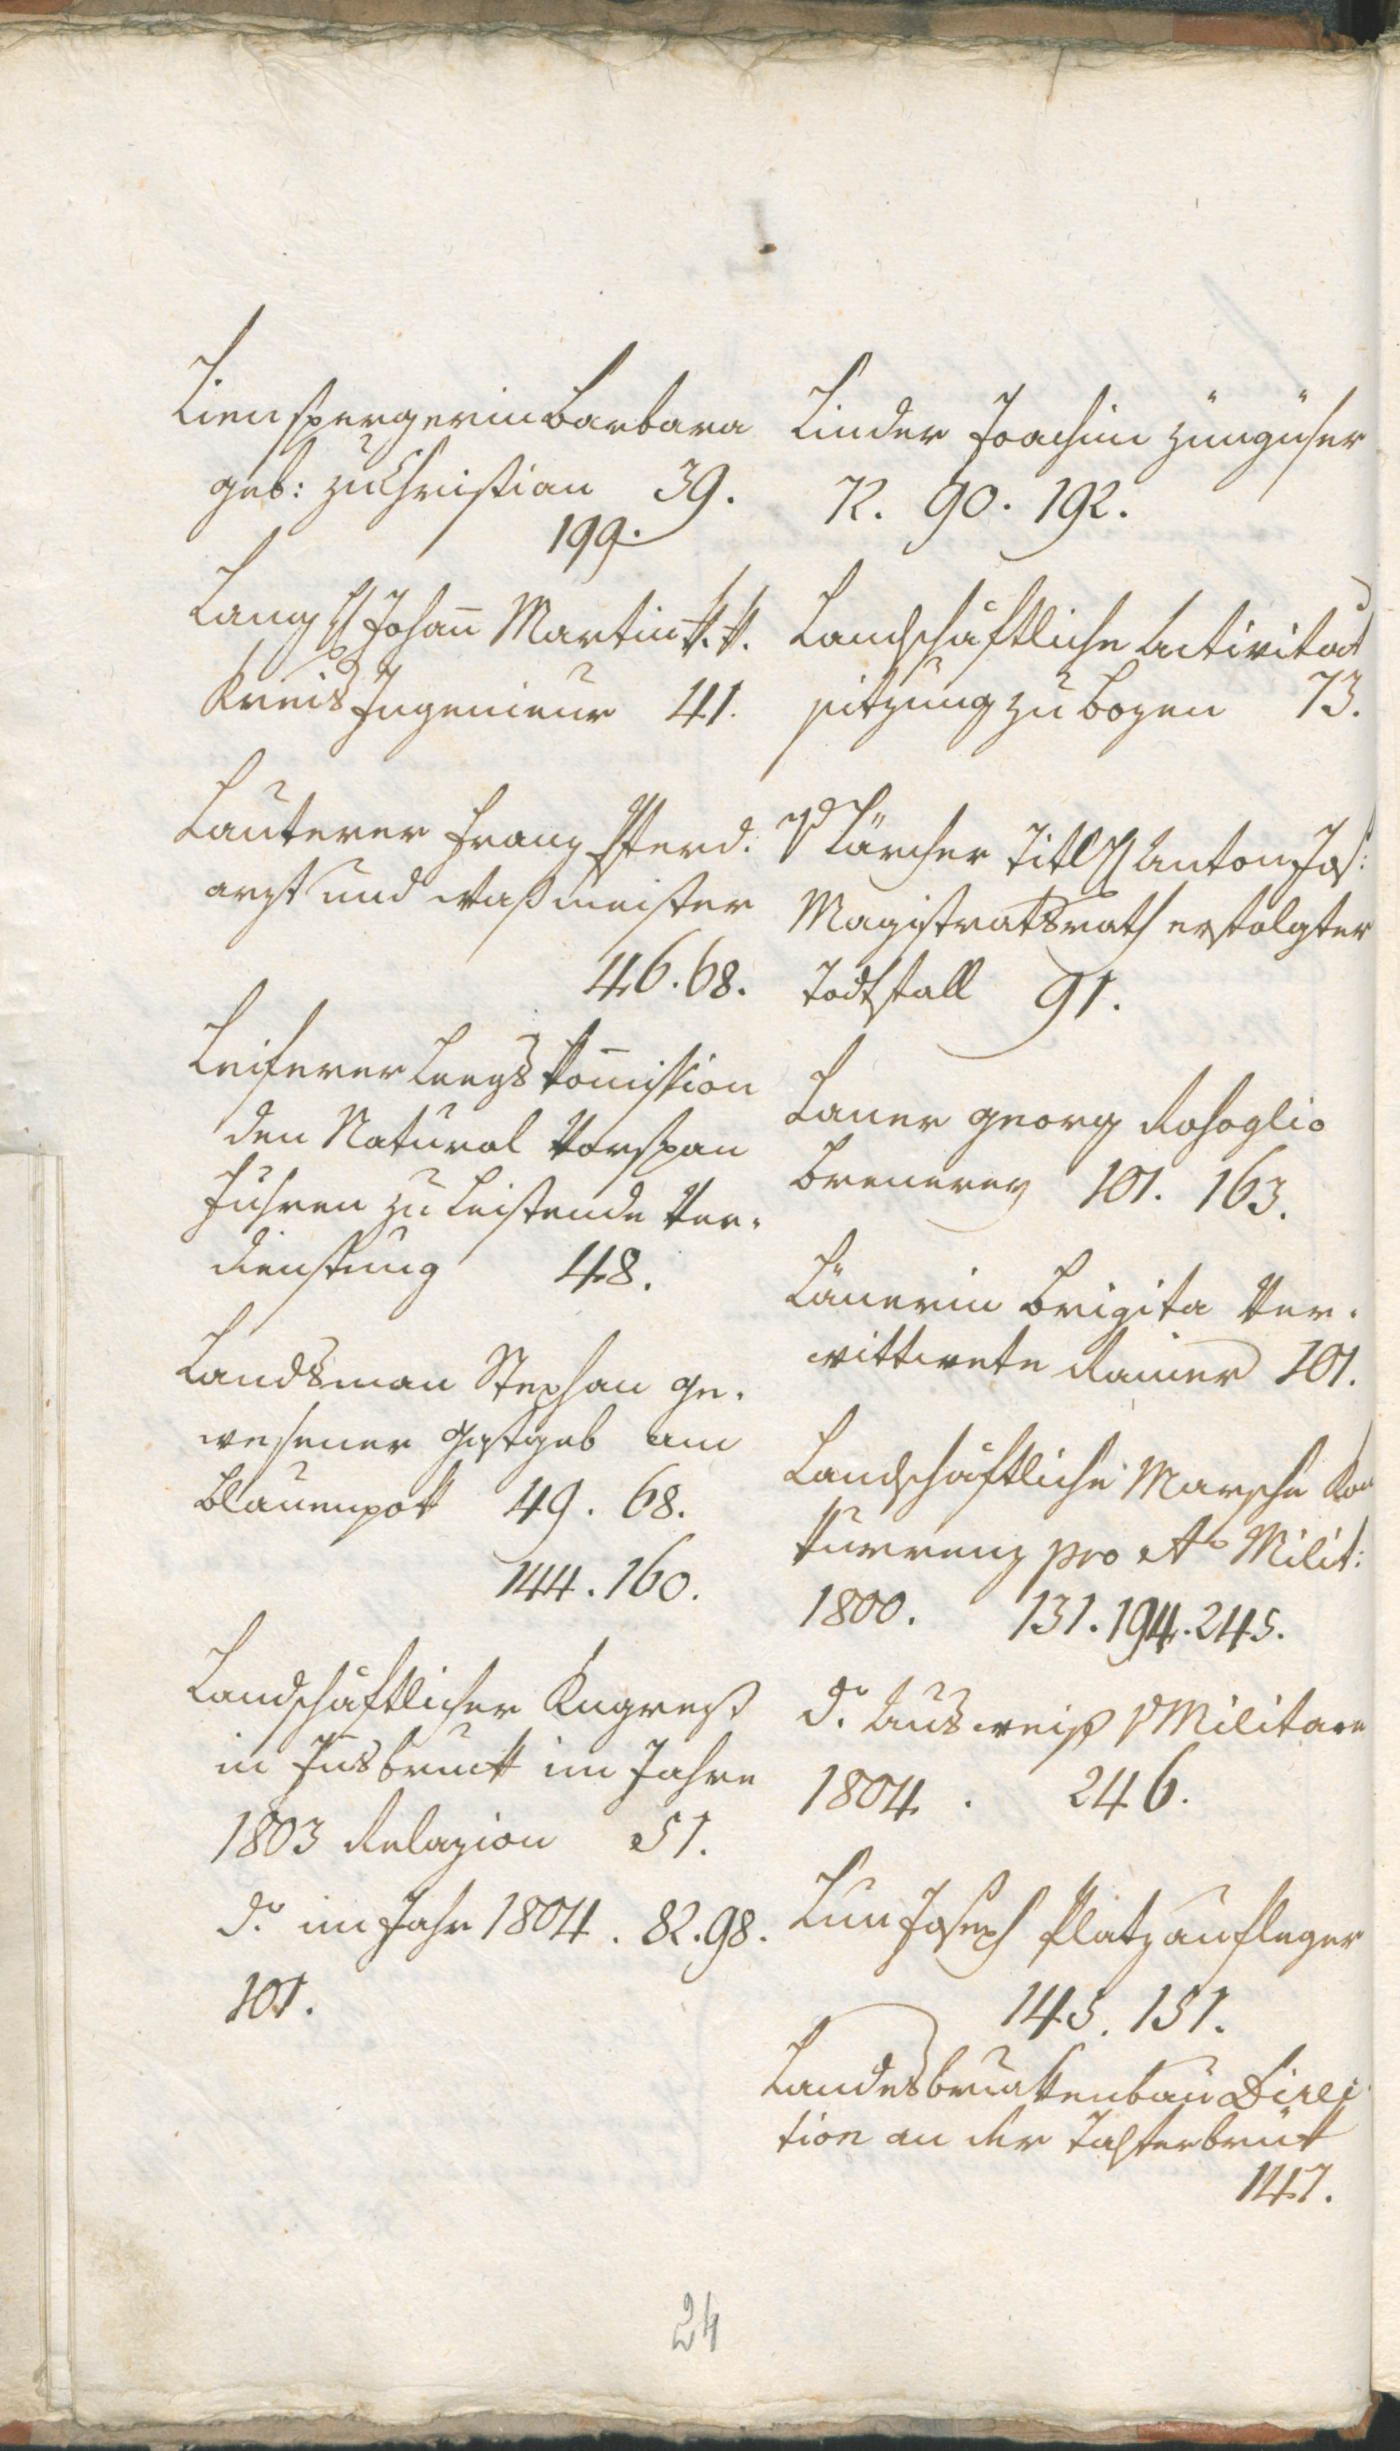 Lienspergerin Barbara
geb: zu Christian 39.
199.
Lang H Johan̄ Martin k. k.
Kreis Ingenieur 41.
Lauterer Franz Pferd.
arzt und Waßmeister
46. 68.
Leiferer Leegs Kom̄ission
den Natural Vorspan
Fuhren zu Leistende Ver-
dienstung 48.
Landsman Stephan ge-
wesener Gastgeb am
Blauenpok 49. 68.
144. 160.
Landschäftlicher Kngreß
in Insbruck im Jahre
1803 Relazion 51.
do im Jahr 1804. 82. 98.
101.
Linder Joachim Züngüßer
72. 90. 192.
Landschäftliche Activitat
sitzung zu Bozen 73.
V Lärcher Titl H Anton Jos:
Magistratsrath erfolgter
Todtfall 91.
Laner Georg Rosoglio
Brenerey 101. 163.
Länerin Brigita Ver-
wittwete Rainer 101.
Landschäftliche Marsche Kon
kurrenz pro Ao Milit:
1800. 131. 194. 245.
do Ausweiß Militare
1804. 246.
Lun Joseph Platzaufleger
145. 151.
Landesbruckenbau Direc
tion an der Talferbruk
147.
24